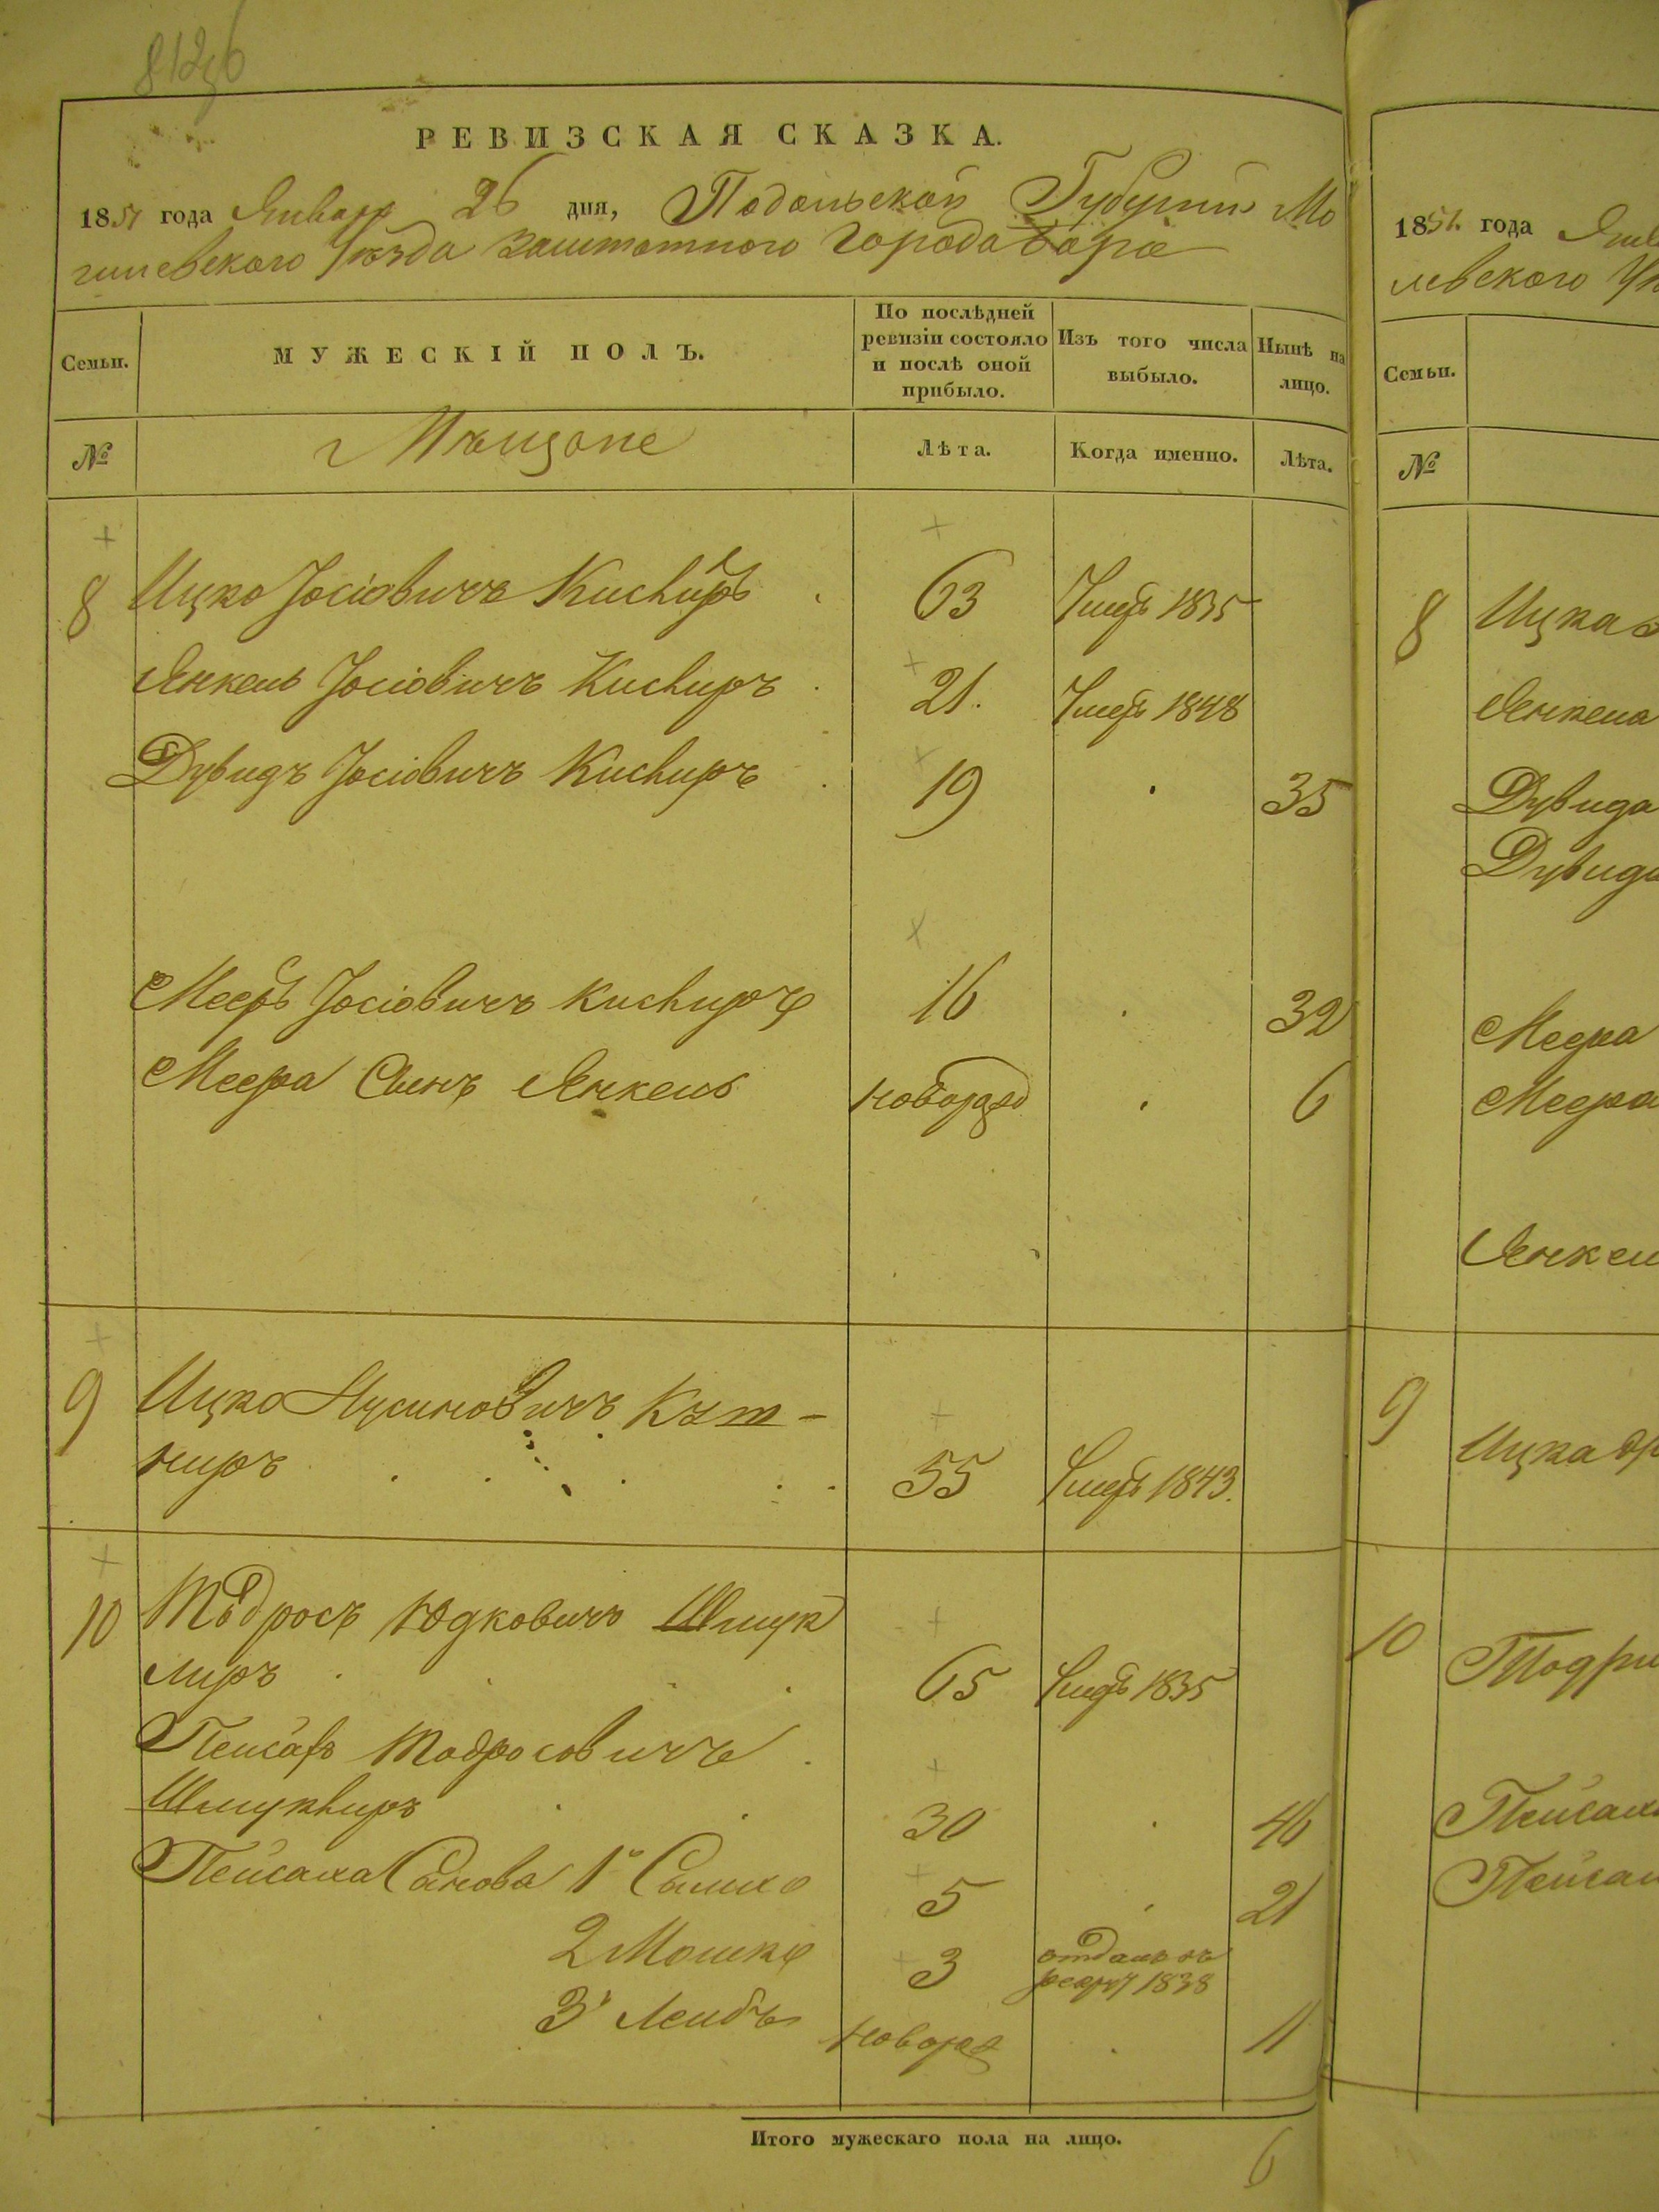 РЕВИЗСКАЯ СКАЗКА.
1851 года Января 26 дня, Подольской Губернии Мо
гилевского Уѣзда заштатного Города Бара
Семьи.
МУЖЕСКІЙ ПОЛЪ.
По послѣдней ревизіи состояло и послѣ оной прибыло.
Изъ того числа выбыло.
Нынѣ на лицо.
№
Мѣщане
Лѣта.
Когда именно.
Лѣта.
8 Ицко Іосіовичъ 63 Умеръ 1835
Янкель Іосіовичъ 21. Умеръ 1848
Дувидъ Іосіовичъ 19 35
Мееръ Іосіовичъ 16 32
Меера Сынъ Янкель новорожд 6
9 Ицко Нусиновичъ Куш-
ниръ 55 Умеръ 1843.
10 Тодросъ Юдковичъ Шмук
лиръ 65 Умеръ 1835
Пейсахъ Тодросовичъ
Шмуклиръ 30 46
Пейсаха Сынова 1й 5 21
2 Мошко 3 отданъ въ
рекруты 1838
3й Лейбъ новорож 11
Итого мужескаго пола на лицо.
6
1851. года
левского
Семьи.
№
8 Ицка
Янкеля
Дувида
Дувида
Меера
Меера
9 Ицка
10